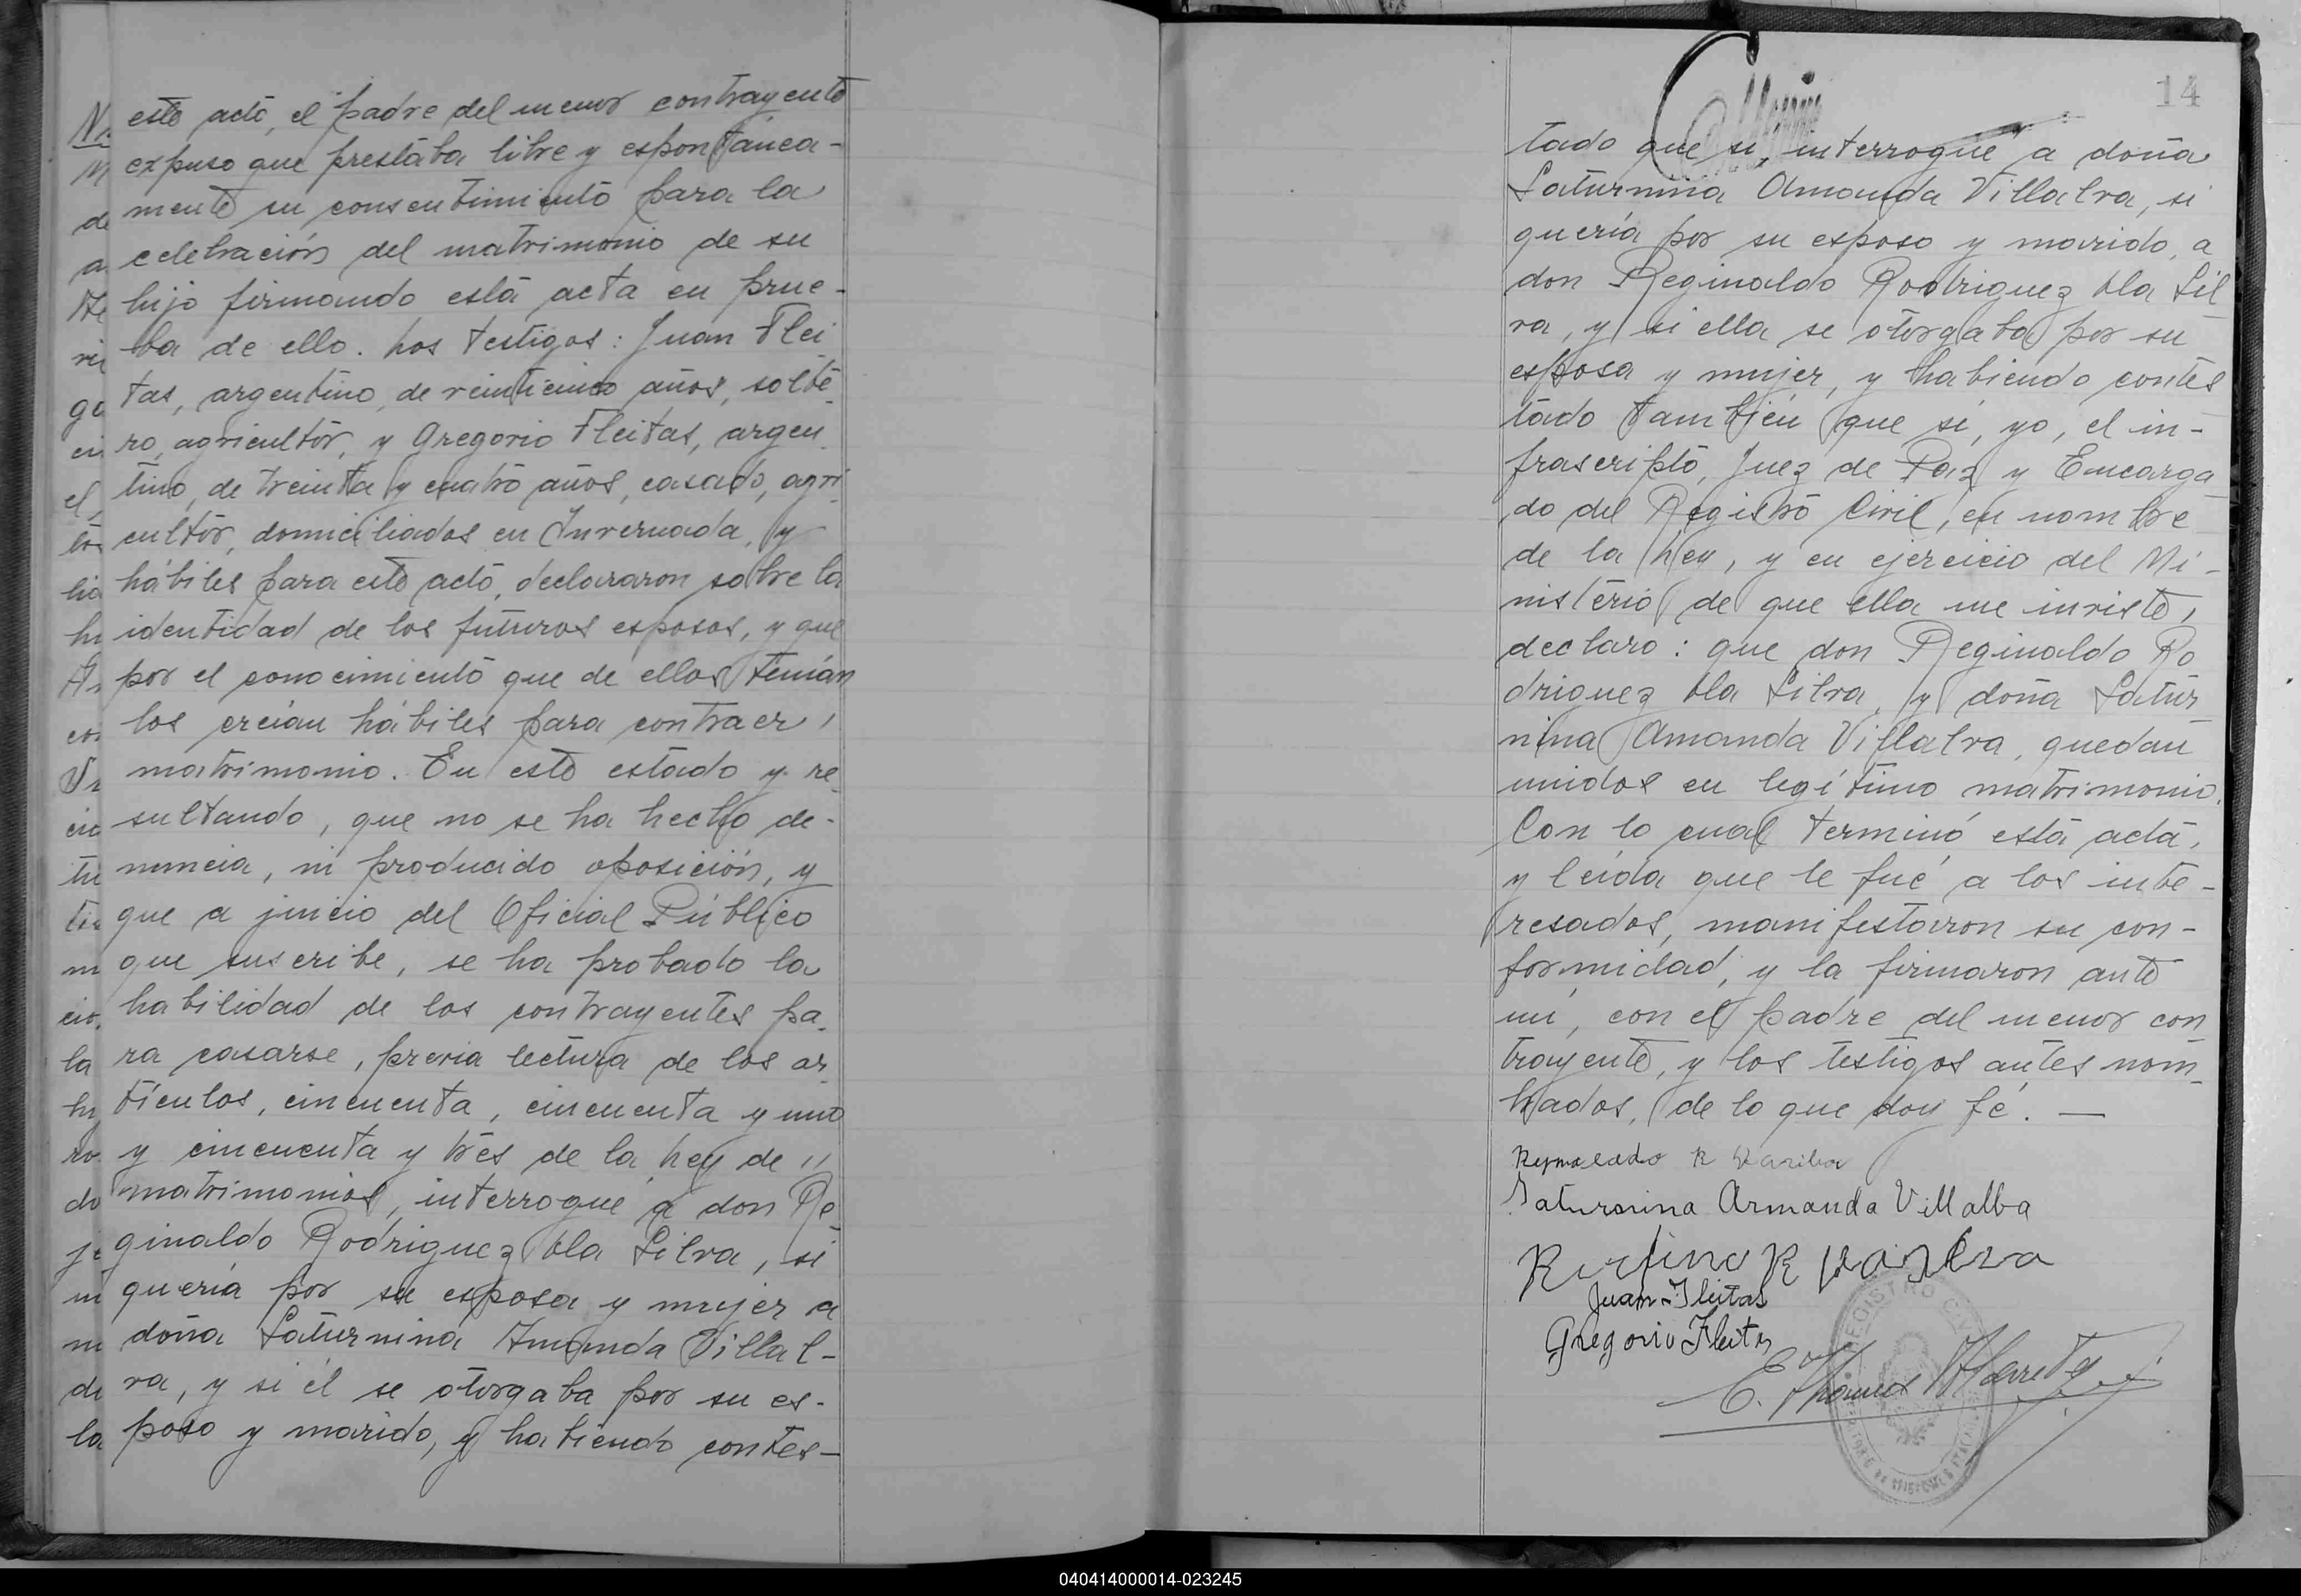 este acto, el padre del menor contrayente
expuso que prestaba libre y espontánea-
mente su consentimiento para la
celebración del matrimonio de su
hijo firmando esta acta en prue-
ba de ello. Los testigos: Juan Flei
tas, argentino, de veinticinco años, solte-
ro, agricultor, y Gregorio Fleitas, argen
tino, de treinta y cuatro años, casado, agri
cultor, domiciliados en Invernada, y
hábiles para este acto, declararon sobre la
identidad de los futuros esposos, y que
por el conocimiento que de ellos tenían
los creían hábiles para contraer,
matrimonio. En este estado y re-
sultando, que no se ha hecho de-
nuncia, ni producido oposición, y
que a juicio del Oficial Público
que suscribe, se ha probado la
habilidad de los contrayentes pa-
ra casarse, previa lectura de los ar-
tículos, cincuenta, cincuenta y uno
y cincuenta y tres de la Ley de "
matrimonios, interrogue a don Re-
ginaldo Rodriguez Da Silva, si
quería por su esposa y mujer a
doña Saturnina Amanda Villal-
va, y si él se otorgaba por su es-
poso y marido, y habiendo contes-
14
tado que si, interrogué a doña
Saturnina Amanda Villalva, si
quería por su esposo y marido, a
don Reginaldo Rodriguez Da Sil
va, y si ella se otorgaba por su
esposa y mujer, y habiendo contes
tado también que sí, yo, el in-
frascripto, Juez de Paz y Encarga
do del Registro Civil, en nombre
de la Ley, y en ejercicio del Mi-
nisterio de que ella me inviste,
declaro: que don Reginaldo Ro
driguez Da Silva, y doña Satur
nina Amanda Villalva, quedan
unidos en legítimo matrimonio.
Con lo cual terminó esta acta,
y leída que le fué a los inte-
resados, manifestaron su con-
formidad, y la firmaron ante
mi, con el padre del menor con
trayente, y los testigos antes nom-
brados, de lo que doy fé. —
R
Saturnina Armanda Villalba
R
Juan Fleitas
Gregorio Fleitas
E.
REGISTRO CIVIL
040414000014-023245